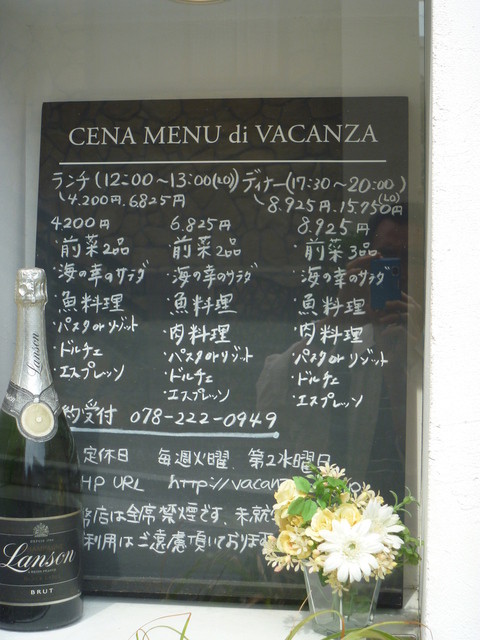 CENA MENU di VACANZA
ランチ(12:00~13:00(LO)) ディナー(17:30~20:00(LO))
4.200円.6.825円 8.925円.15.750円
4200円 6.825円 8.925円
・前菜2品 ・前菜2品 ・前菜3品
・海の幸のサラダ ・海の幸のサラダ ・海の幸のサラダ
・魚料理 ・魚料理 ・魚料理
・パスタorリゾット ・肉料理 ・肉料理
・ドルチェ ・パスタorリゾット ・パスタorリゾット
・エスプレッソ ・ドルチェ ・ドルチェ
・エスプレッソ ・エスプレッソ
約受付 078-222-0949
定休日 毎週火曜、第2水曜日
HP URL http://vacan
当店は全席禁煙です、未就
利用はご遠慮頂いております
Lanson
Lanson
BRUT